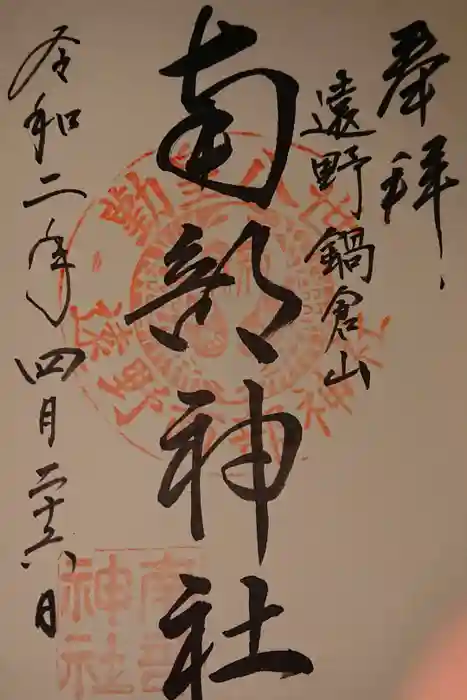 奉拝
遠野鍋倉山
南部神社
令和二年四月二十六日
南部
神社